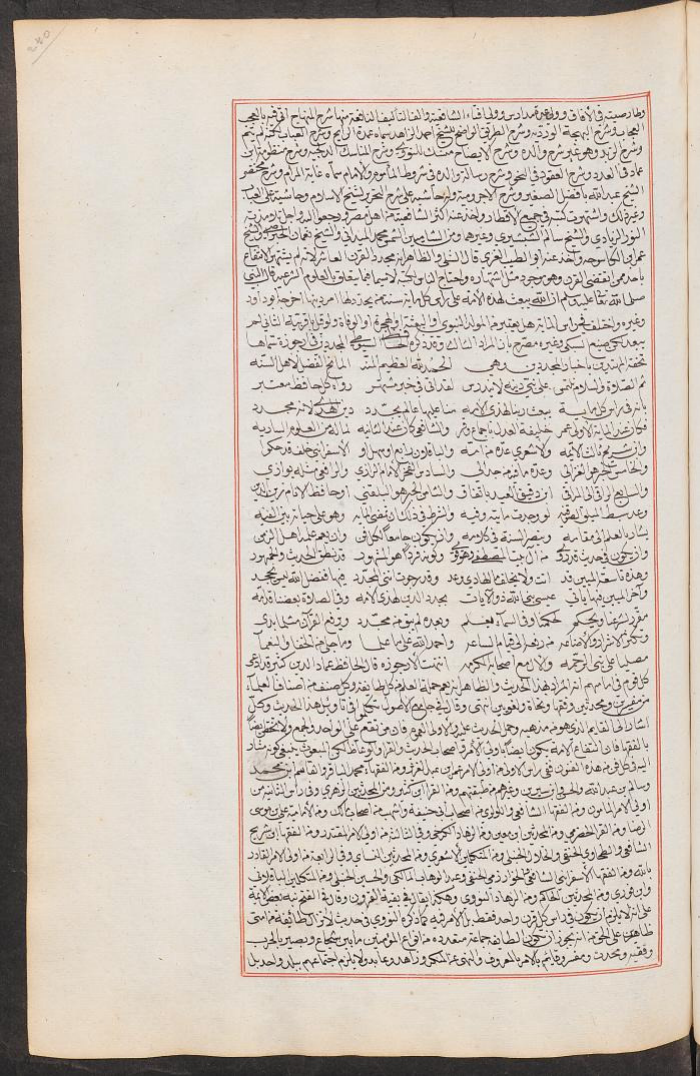 وطار صيته في الآفاق وولي عدة مدارس وولي افتاء الشافعية والف التأليف النافعة منها شرح المنهاج اتى فيه بالعجب
العجاب وشرح البهجة الوردية وشرح الطريق الواضح للشيخ احمد الزاهد سماه عمدة الرابح وشرح العباب لكنه لم يتم
وشرح الزبد وهو غير شرح والده وشرح الايضاح مناسك النووي وشرح المناسك الدلجية وشرح منظومة ابن
عماد في العدد وشرح العقود في النحو وشرح رسالة والده في شروط المأموم والامام سماه غاية المرام وشرح مختصر
الشيخ عبد الله بافضل الصغير وشرح الاجرومية وله حاشية على شرح التحرير لشيخ الاسلام وحاشية على العباب
وغير ذلك واشتهرت كتبه في جميع الاقطار واخذ عنه اكثر الشافعية من اهل مصر ورجعوا اليه واجلهم
النور الزيادي والشيخ سالم الشبشيري وغيرهما ومن الشاميين الشمس محمد الميداني والشيخ نعمان
عمر ابن الكاسوحه واخذ عنه ابو الطيب الغزي قال الشلي والظاهر انه مجدد القرن العاشر لانه لم يشتهر الانتفاع
باحد ممن انقضى القرن وهو موجود مثل اشتهاره واحتاج الناس لكتبه لا سيما فيما يتعلق بالعلوم الشرعية قال النبي
صلى الله تعالى عليه وسلم ان الله يبعث لهذه الامة على رأس كل ماية سنة من يجدد لها امر دينها اخرجه ابو داود
وغيره واختلف في رأس الماية هل يعتبر من المولد النبوي او البعثة او الهجرة او الوفاة ولو قيل باقربية الثاني لم
يبعد لكن صنيع السبكي وغيره مصرح بان المراد الثالث وقد ذكر الحافظ السيوطي المجددين في ارجوزة سماها
تحفة المهتدين باخبار المجددين وهي الحمد لله العظيم المنه المانح الفضل لاهل السنه
ثم الصلاة والسلام نلتمس على نبي دينه لا يندرس لقد اتى في خبر مشتهر رواه كل حافظ معتبر
بانه في رأس كل مايه يبعث ربنا لهذي الامه منا عليها عالما يجدد دين الهدى لانه مجدد
فكان عند الماية الاولى عمر خليفة العدل باجماع وقر والشافعي كان عند الثانيه لما له من العلوم الساريه
وابن شريح ثالث الايمه والاشعري عده من امه والباقلاني رابع او سهل او الاسفرايني خلف قد حكوا
والخامس الحبر هو الغزالي وعده ما فيه من جدال والسادس الفخر الامام الرازي والرافعي مثله يوازي
والسابع الراقي الى المراقي ابن دقيق العيد باتفاق والثامن الحبر هو البلقيني او حافظ الانام زين الدين
وعد سبط الميلق الصوفيه لو وجدت مايته وفيه والشرط في ذلك ان تمضي المايه وهو على حياته بين الفيه
يشار بالعلم الى مقامه وينصر السنة في كلامه وان يكون جامعا لكل فن وان يعم علمه اهل الزمن
وان يكون في حديث قد روي من آل بيت المصطفى وقد قوي وكونه فردا هو المشهور قد نطق الحديث والجمهور
وهذه تاسعة المئين قد اتت ولا يخلف ما الهادي وعد وقد رجوت انني المجدد فيها ففضل الله ليس يجحد
وآخر المئين فيها ياتي عيسى نبي الله ذو الآيات يجدد الدين لهذي الامه وفي الصلاة بعضنا قد امه
مقررا لشرعنا ويحكم بحكمنا وفي السماء يعلم وبعده لم يبق من مجدد ويرفع القرآن مثل ما بدي
وتكثر الاشرار والاضاعه من رفعه الى قيام الساعه واحمد الله على ما علما وما جلا من الخفا وانعما
مصليا على نبي الرحمه والآل مع اصحابه المكرمه انتهت الارجوزة قال الحافظ عماد الدين ابن كثير قد ادعى
كل قوم في امامهم انه المراد بهذا الحديث والظاهر انه يعم حملة العلم من كل طائفة وكل صنف من اصناف العلماء
من مفسرين ومحدثين وفقها ونحاة ولغويين انتهى وقال في جامع الاصول تكلموا في تأويل هذا الحديث وكل
اشار الى القايم الذي هو من مذهبه وحمل الحديث عليه والاولى العموم فان من تقع على الواحد والجمع ولا تختص ايضا
بالفقها فان انتفاع الامة يكون ايضا باولي الامر واصحاب الحديث والقراء والوعاظ لكن المبعوث ينبغي كونه مشارا
اليه في كل فن من هذه الفنون ففي رأس الاولى من اولي الامر عمر بن عبد العزيز ومن الفقهاء محمد الباقر والقاسم بن محمد
وسالم بن عبد الله والحسن وابن سيرين وغيرهم من طبقتهم ومن القراء ابن كثير ومن المحدثين الزهري وفي رأس الثانية من
اولي الامر المامون ومن الفقها الشافعي واللؤلؤي من اصحاب ابي حنيفة واشهب من اصحاب مالك ومن الامامية علي بن موسى
الرضا ومن القراء الحضرمي ومن المحدثين ابن معين ومن الزهاد الكرخي وفي الثالثة من اولي الامر المقتدر ومن الفقها ابن شريح
الشافعي والطحاوي الحنفي والخلال الحنبلي ومن المتكلمين الاشعري ومن المحدثين النسائي وفي الرابعة من اولي الامر القادر
بالله ومن الفقها الاسفرايني الشافعي والخوارزمي الحنفي وعبد الوهاب المالكي والحسين الحنبلي ومن المتكلمين الباقلاني
وابن فورك ومن المحدثين الحاكم ومن الزهاد الدينوري وهكذا يقال في بقية القرون وقال في الفتح نبه بعض الائمة
على انه لا يلزم ان يكون في رأس كل قرن واحد فقط بل الامر فيه كما ذكره النووي في حديث لا تزال طائفة من امتي
ظاهرين على الحق من انه يجوز ان تكون الطائفة جماعة متعددة من انواع المؤمنين ما بين شجاع وبصير بالحرب
وفقيه ومحدث ومفسر وقايم بالامر بالمعروف والنهي عن المنكر وزاهد وعابد ولا يلزم اجتماعهم ببلد واحد بل